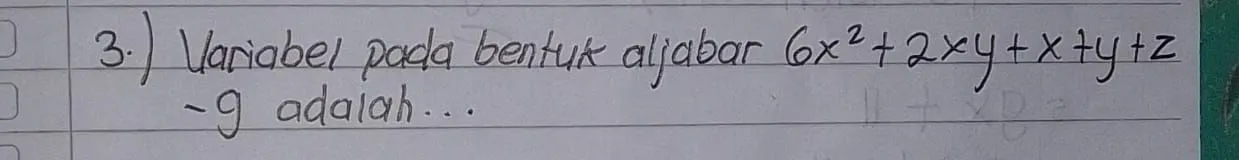 3.) Variabel pada bentuk aljabar 6x² + 2xy + x + y + z
-9 adalah...